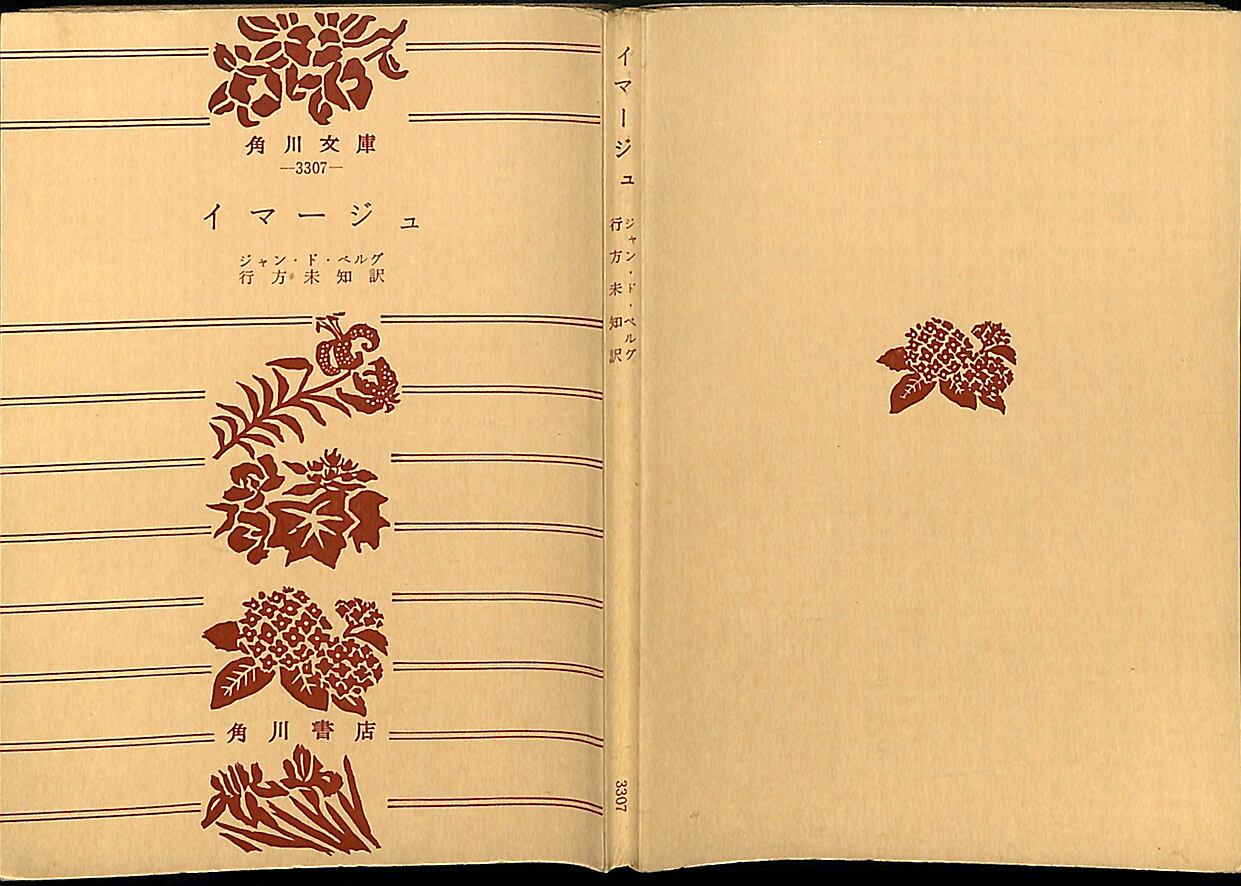 角川文庫
—3307—
イマージュ
ジャン・ド・ベルグ
行方未知訳
角川書店
イマージュ
ジャン・ド・ベルグ
行方未知訳
3307